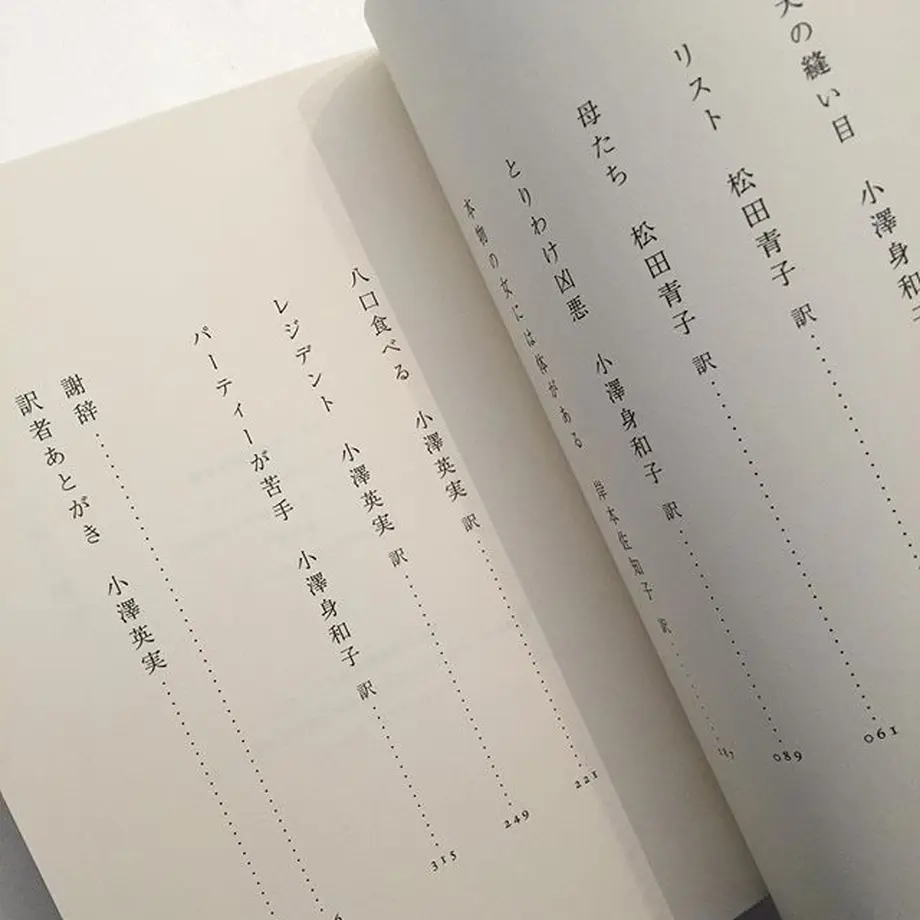 の縫い目 小澤身和
リスト 松田青子 訳
母たち 松田青子 訳 061
とりわけ凶悪 小澤身和子 訳 089
本物の女には体がある 岸本佐知子 訳
八口食べる 小澤英実 訳 221
レジデント 小澤英実 訳 249
パーティーが苦手 小澤身和子 訳 315
謝辞
訳者あとがき 小澤英実